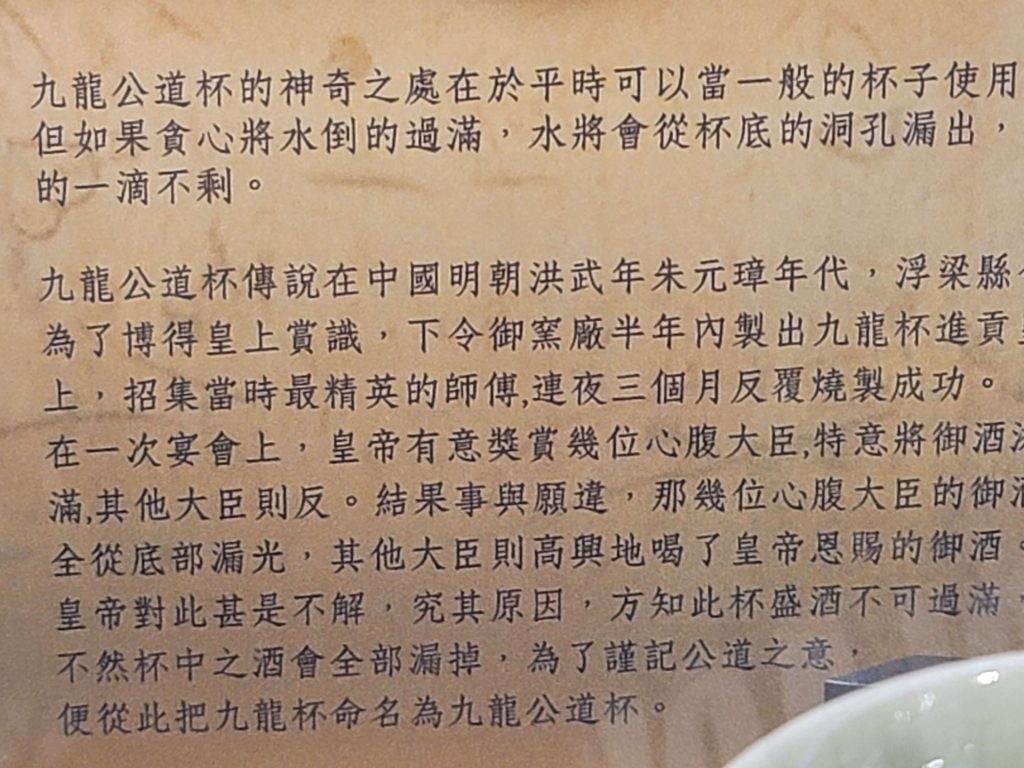 九龍公道杯的神奇之處在於平時可以當一般的杯子使用
但如果貪心將水倒的過滿，水將會從杯底的洞孔漏出，
的一滴不剩。
九龍公道杯傳說在中國明朝洪武年朱元璋年代，浮梁縣
為了博得皇上賞識，下令御窯廠半年內製出九龍杯進貢
上，招集當時最精英的師傅,連夜三個月反覆燒製成功。
在一次宴會上，皇帝有意獎賞幾位心腹大臣,特意將御酒
滿,其他大臣則反。結果事與願違，那幾位心腹大臣的御酒
全從底部漏光，其他大臣則高興地喝了皇帝恩賜的御酒。
皇帝對此甚是不解，究其原因，方知此杯盛酒不可過滿，
不然杯中之酒會全部漏掉，為了謹記公道之意，
便從此把九龍杯命名為九龍公道杯。